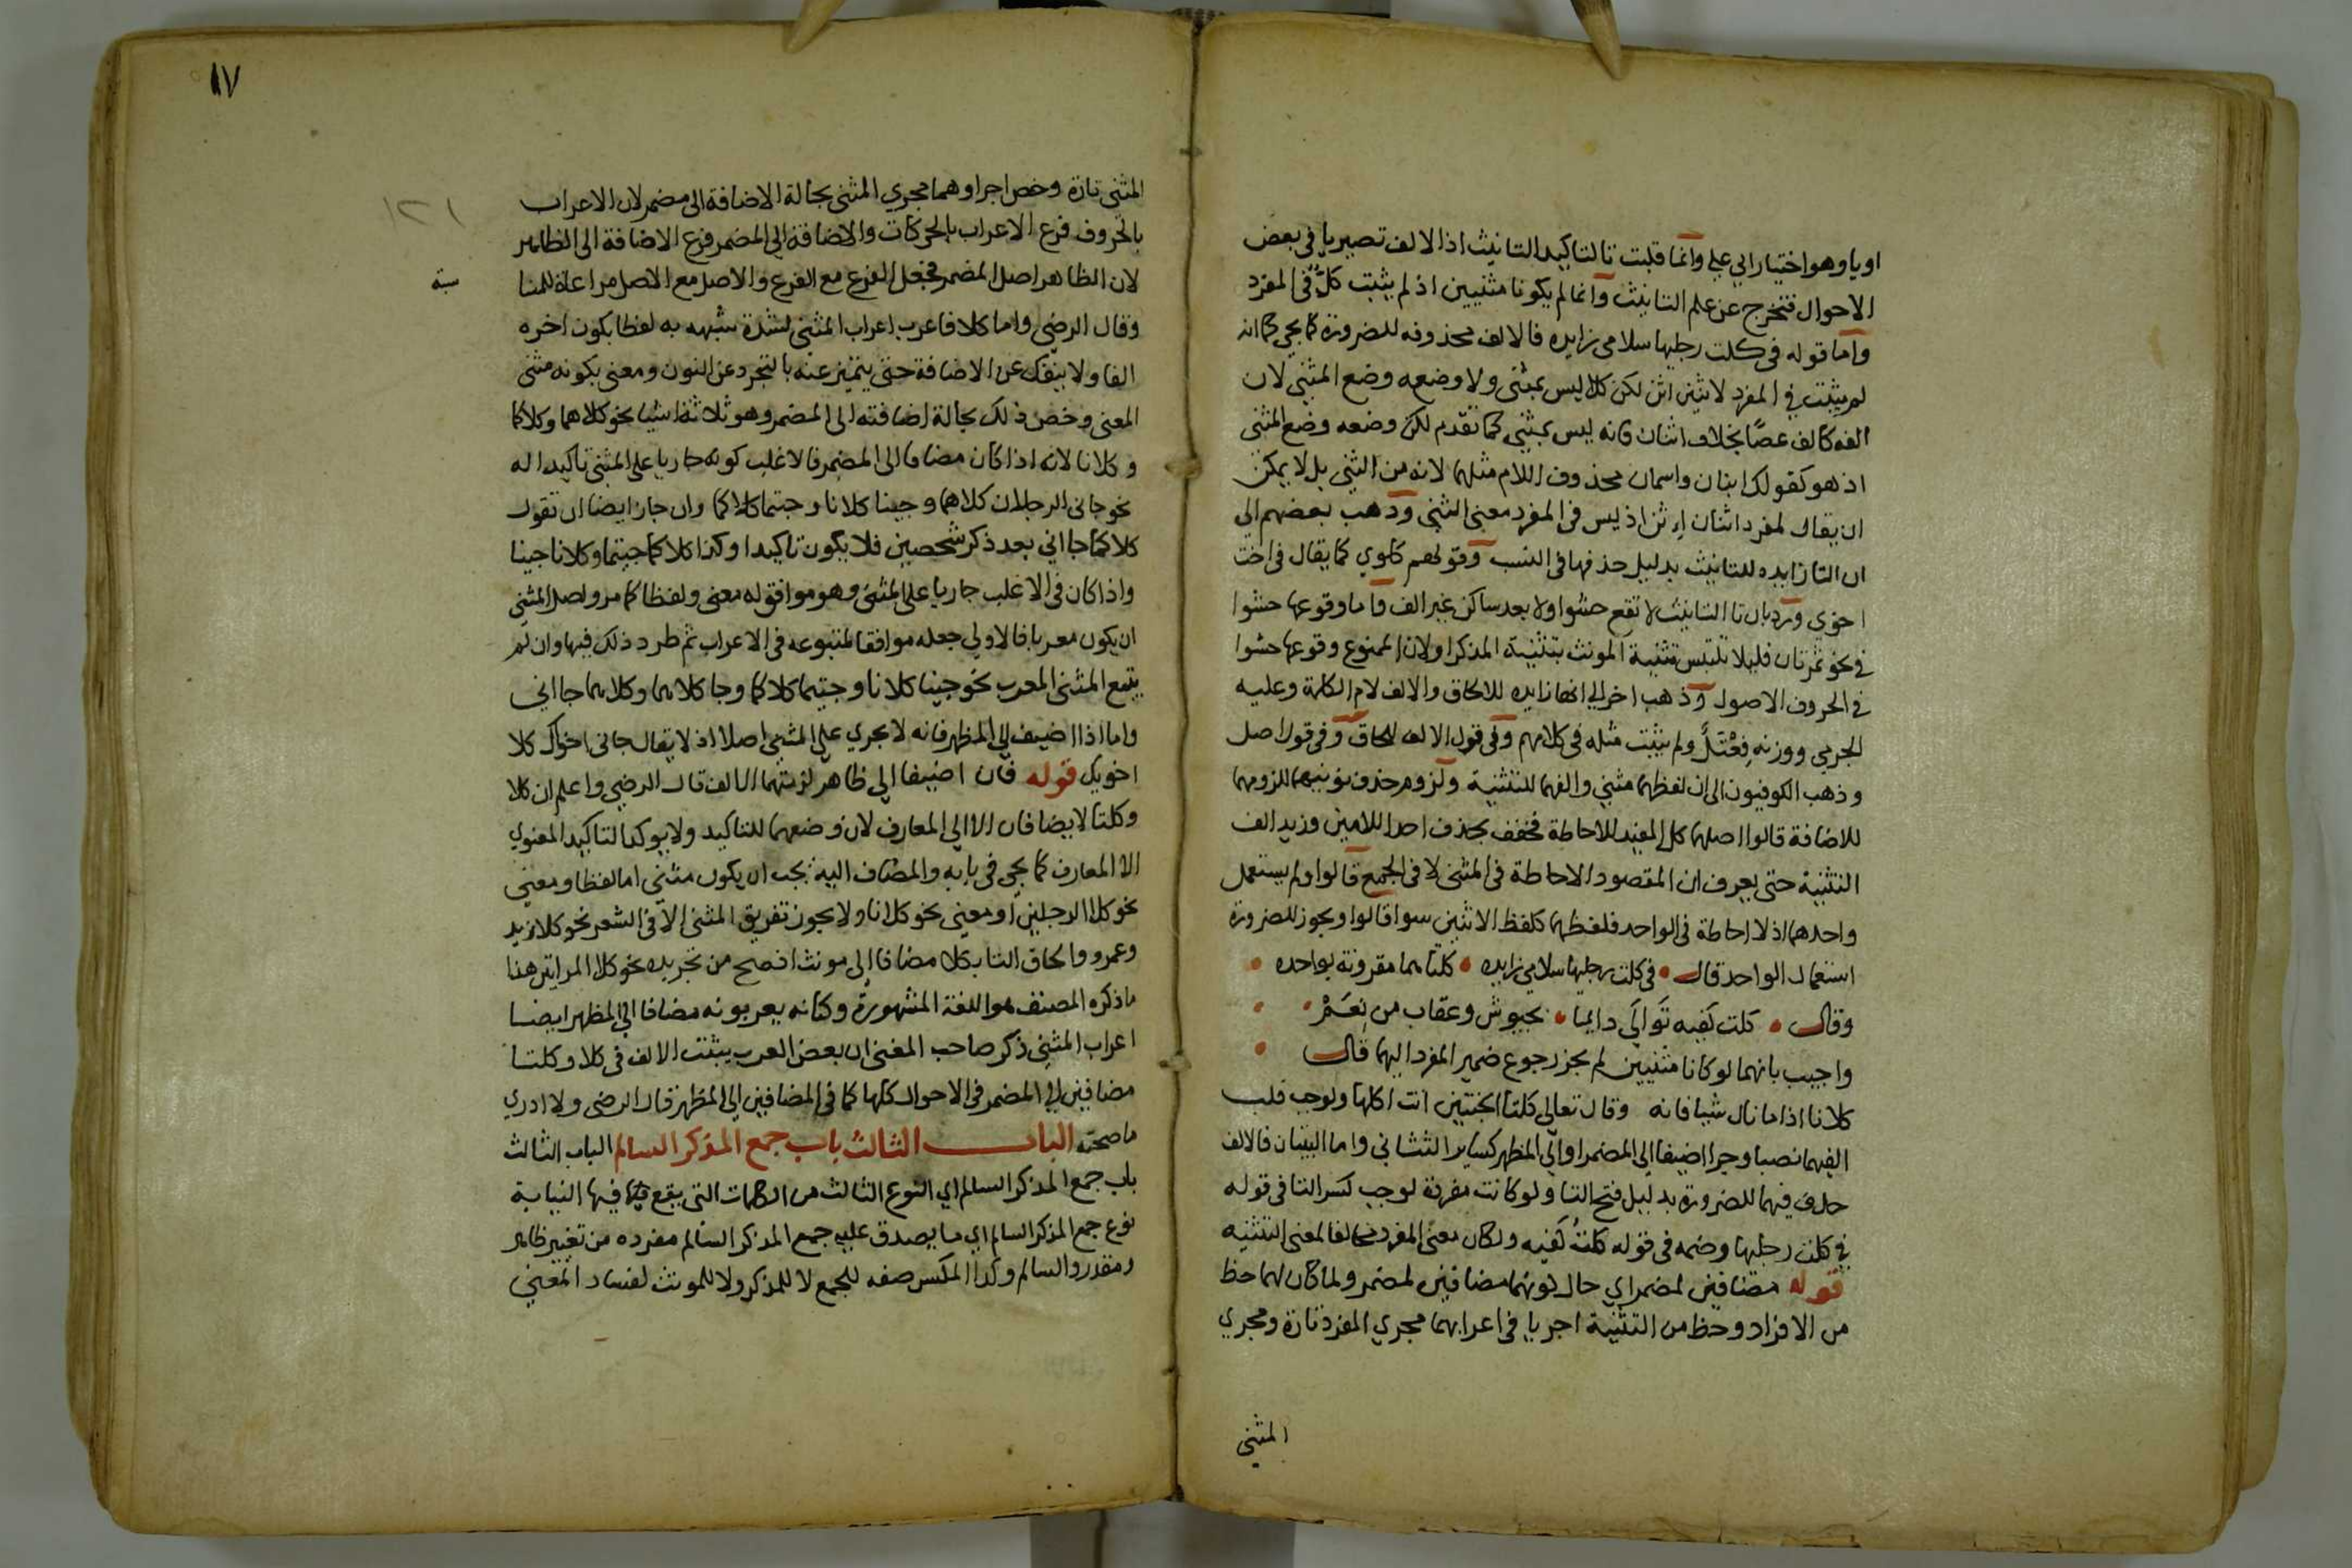 او يا وهو اختيار ابي علي وانما قلبت تا لتاكيد التانيث اذ الالف تصير يا في بعض
الاحوال فتخرج عن علم التانيث وانما لم يكونا مثنيين اذ لم يثبت كلٌ في المفرد
واما قوله في كلت رجليها سلامي زايده فالالف محذوفه للضرورة كما يجي كما انه
لم يثبت في المفرد لاثنين اثن لكن كلا ليس بمثنى ولا وضعه وضع المثنى لان
الفه كالف عصًا بخلاف اثنان فانه ليس بمثنى كما تقدم لكن وضعه وضع المثنى
اذ هو كقولك ابنان واسمان محذوف اللام مثلهما لانه من الثني بل لا يمكن
ان يقال لمفرد اثنان اِثن اذ ليس في المفرد معنى الثني وذهب بعضهم الي
ان التا زايده للتانيث بدليل حذفها في النسب وقولهم كلوي كما يقال في اخت
اخوي ورد بان تا التانيث لا تقع حشوا ولا بعد ساكن غير الف واما وقوعها حشوا
في نحو ثمرتان فليلا تلتبس تثنية المونث بتثنية المذكر او لان الممنوع وقوعها حشوا
في الحروف الاصول وذهب اخر الي انها زايده للالحاق والالف لام الكلمة وعليه
الجرمي ووزنه فِعْتَلٌ ولم يثبت مثله في كلامهم وفي قول الالف للحاق وفي قول اصل
وذهب الكوفيون الى ان لفظهما مثني والفهما للتثنية ولزوم حذف نونيهما للزومهما
للاضافة قالوا اصلهما كل المفيد للاحاطة فخفف بحذف احد اللامين وزيد الف
التثنية حتى يعرف ان المقصود الاحاطة في المثنى لا في الجمع قالوا ولم يستعمل
واحدهما اذ لا احاطة في الواحد فلفظهما كلفظ الاثنين سوا قالوا ويجوز للضرورة
استعمال الواحد قال • في كلت رجليها سلامي زايده • كلتاهما مقرونة بواحده •
وقال • كلت كَفيه تَوالَي دايما • بجيوش وعقاب من نِعَمْ •
واجيب بانهما لو كانا مثنيين لم يجز رجوع ضمير المفرد اليهما قال •
كلانا اذا ما نال شيا فاته وقال تعالى كلتا الجنتين اتت اكلها ولوجب قلب
الفهما نصبا وجرا اضيفا الي المضمر او الي المظهر كساير التثاني واما البيتان فالالف
حذف فيهما للضرورة بدليل فتح التا ولو كانت مفردة لوجب كسر التا في قوله
في كلت رجليها وضمه في قوله كلتُ كَفيه ولكان معنى المفرد مخالفا لمعنى التثنيه
قوله مضافين لمضمر اي حال كونهما مضافين لمضمر ولما كان لهما حظ
من الافراد وحظ من التثنية اجريا في اعرابهما مجري المفرد تارة ومجري
المثني
١٧
١٢١
المثنى تارة وخص اجراوهما مجري المثنى بحالة الاضافة الى مضمر لان الاعراب
بالحروف فرع الاعراب بالحركات والاضافة الي المضمر فرع الاضافة الى الظاهر
لان الظاهر اصل المضمر فجعل الفرع مع الفرع والاصل مع الاصل مراعاة للمنا
سبة
وقال الرضي واما كلا فاعرب اعراب المثنى لشدة شبهه به لفظا بكون اخره
الفا ولا ينفك عن الاضافة حتى يتميز عنه بالتجرد عن النون ومعنى بكونه مثنى
المعنى وخص ذلك بحالة اضافته الى المضمر وهو ثلاثة اشيا نحو كلاهما وكلاكما
وكلانا لانه اذا كان مضافا الى المضمر فالاغلب كونه جاريا على المثنى تاكيدا له
نحو جاني الرجلان كلاهما وجينا كلانا وجيتما كلاكما وان جاز ايضا ان تقول
كلاكما جااني بعد ذكر شخصين فلا يكون تاكيدا وكذا كلاكما جيتما وكلانا جينا
واذا كان في الاغلب جاريا على المثنى وهو موافق له معنى ولفظا كما مر واصل المثني
ان يكون معربا فالاولي جعله موافقا لمتبوعه في الاعراب ثم طرد ذلك فيها وان لم
يتبع المثنى المعرب نحو جينا كلانا وجيتما كلاكما وجا كلاهما وكلاهما جااني
واما اذا اضيف الي المظهر فانه لا يجري على المثني اصلا اذ لا يقال جاني اخواك كلا
اخويك قوله فان اضيفا الي ظاهر لزمتهما الالف قال الرضي واعلم ان كلا
وكلتا لا يضافان الا الي المعارف لان وضعهما للتاكيد ولا يوكد التاكيد المعنوي
الا المعارف كما يجي في بابه والمضاف اليه يجب ان يكون مثني اما لفظا ومعني
نحو كلا الرجلين او معنى نحو كلانا ولا يجوز تفريق المثنى الا في الشعر نحو كلا زيد
وعمرو والحاق التا بكلا مضافا الى مونث افصح من تجريده نحو كلا المراتين هنا
ما ذكره المصنف هو اللغة المشهورة وكنانه يعربونه مضافا الي المظهر ايضا
اعراب المثنى ذكر صاحب المغني ان بعض العرب يثبت الالف في كلا وكلتا
مضافين الي المضمر في الاحوال كلها كما في المضافين الي المظهر قال الرضي ولا ادري
ما صحته الباب الثالث باب جمع المذكر السالم الباب الثالث
باب جمع المذكر السالم اي النوع الثالث من الكلمات التي يقع فيها النيابة
نوع جمع المذكر السالم اي ما يصدق عليه جمع المذكر السالم مفرده من تغيير ظاهر
ومقدر والسالم وكذا المكسر صفه للجمع لا للمذكر ولا للمونث لفساد المعني